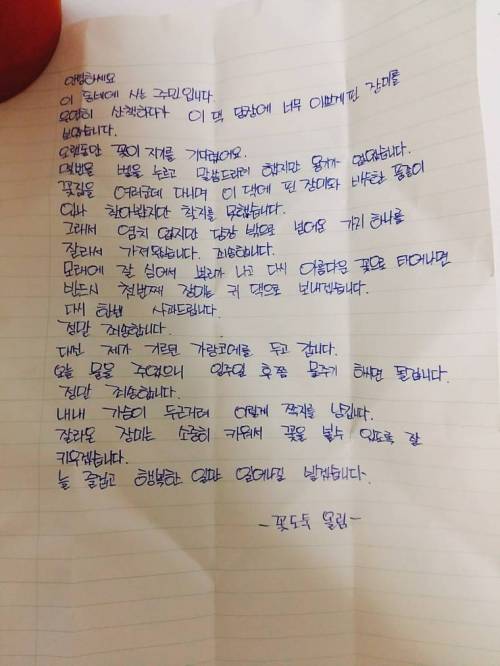 안녕하세요
이 동네에 사는 주민입니다.
우연히 산책하다가 이 댁 담장에 너무 이쁘게 핀 장미를
보았습니다.
오랫동안 꽃이 지기를 기다렸어요.
몇번을 벨을 누르고 말씀드리려 했지만 용기가 없었습니다.
꽃집을 여러군데 다니며 이 댁에 핀 장미와 비슷한 품종이
있나 찾아봤지만 찾지를 못했습니다.
그래서 염치 없지만 담장 밖으로 넘어온 가지 하나를
잘라서 가져왔습니다. 죄송합니다.
모래에 잘 심어서 뿌리가 나고 다시 아름다운 꽃으로 태어나면
반드시 첫번째 장미는 귀 댁으로 보내겠습니다.
다시 한번 사과드립니다.
정말 죄송합니다.
대신 제가 기르던 카랑코에를 두고 갑니다.
오늘 물을 주었으니 일주일 후쯤 물주기 하시면 될겁니다.
정말 죄송합니다.
내내 가슴이 두근거려 이렇게 쪽지를 남긴니다.
잘라온 장미는 소중히 키워서 꽃을 볼수 있도록 잘
키우겠습니다.
늘 즐겁고 행복한 일만 일어나길 빌겠습니다.
-꽃도둑 올림-